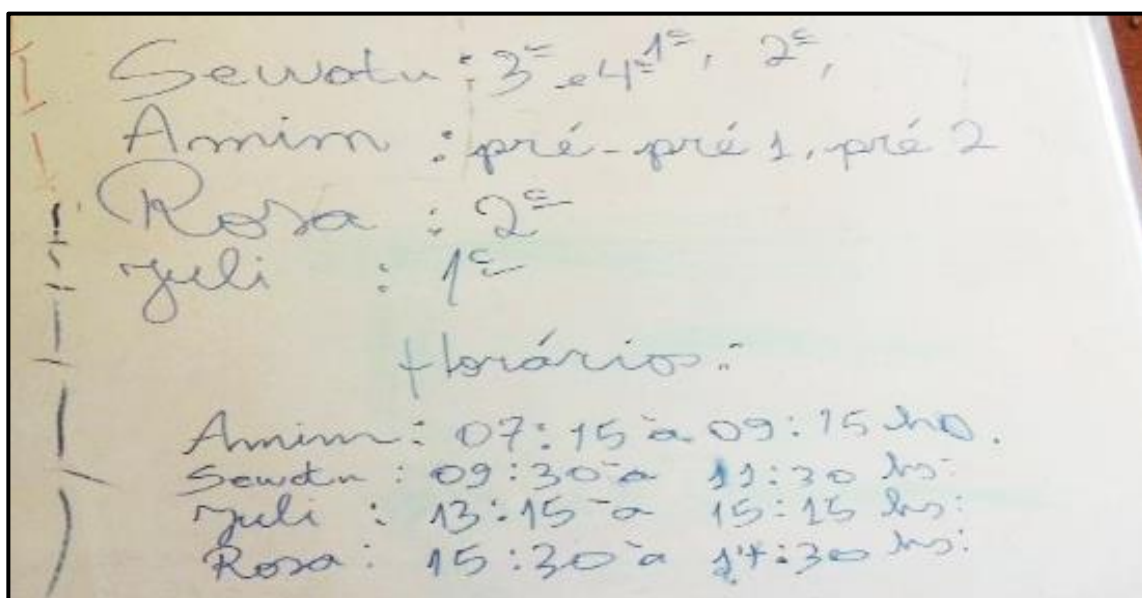 Sewatu : 3ª e 4ª 1ª, 2ª,
Amim : pré-pré 1, pré 2
Rosa : 2ª
Juli : 1ª
Horários:
Amim: 07:15 à 09:15 hs.
Sewatu : 09:30 à 11:30 hs.
Juli : 13:15 à 15:15 hs:
Rosa : 15:30 à 17:30 hs: